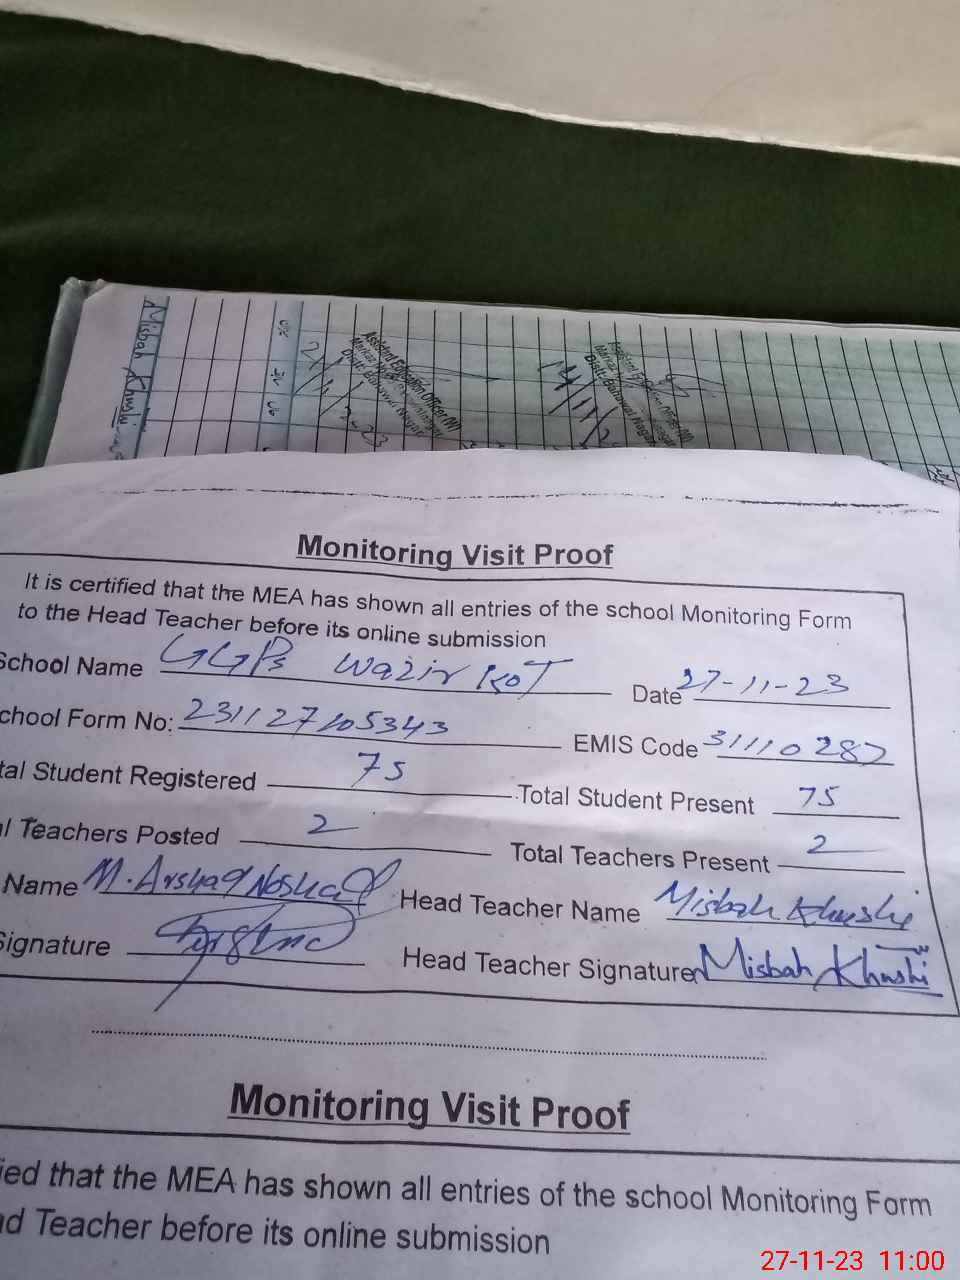 Misbah Khushi
Assistant Education Officer (W)
Monitoring Visit Proof
It is certified that the MEA has shown all entries of the school Monitoring Form
to the Head Teacher before its online submission
School Name GGPS Wazir Kot Date 27-11-23
chool Form No: 231127105343 EMIS Code 31110287
tal Student Registered 75 Total Student Present 75
l Teachers Posted 2 Total Teachers Present 2
Name M. Arshad Head Teacher Name Misbah Khushi
Signature Head Teacher Signature Misbah Khushi
Monitoring Visit Proof
ied that the MEA has shown all entries of the school Monitoring Form
ad Teacher before its online submission
27-11-23 11:00